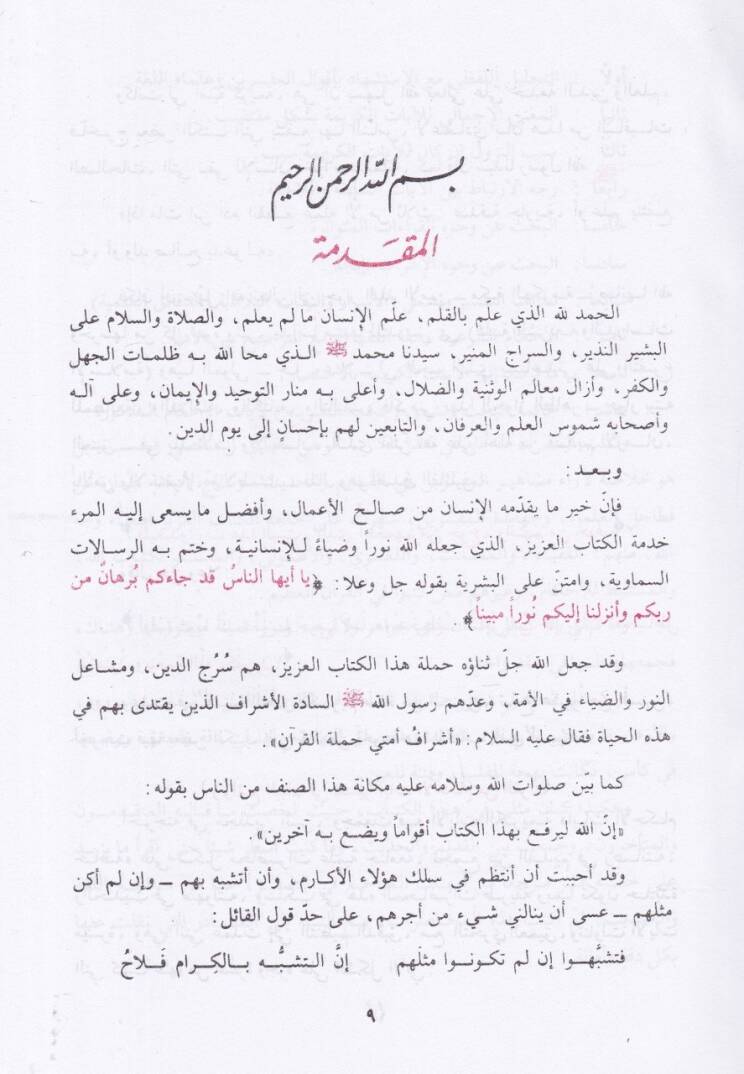 بسم الله الرحمن الرحيم
المقدمة
الحمد لله الذي علم بالقلم، علّم الإنسان ما لم يعلم، والصلاة والسلام على
البشير النذير، والسراج المنير، سيدنا محمد ﷺ الذي محا الله به ظلمات الجهل
والكفر، وأزال معالم الوثنية والضلال، وأعلى به منار التوحيد والإيمان، وعلى آله
وأصحابه شموس العلم والعرفان، والتابعين لهم بإحسانٍ إلى يوم الدين.
وبعد:
فإنّ خير ما يقدّمه الإنسان من صالح الأعمال، وأفضل ما يسعى إليه المرء
خدمة الكتاب العزيز، الذي جعله الله نوراً وضياءً للإنسانية، وختم به الرسالات
السماوية، وامتن على البشرية بقوله جل وعلا: ﴿يا أيها الناسُ قد جاءكم بُرهانٌ من
ربكم وأنزلنا إليكم نوراً مبيناً﴾.
وقد جعل الله جلّ ثناؤه حملة هذا الكتاب العزيز، هم سُرُج الدين، ومشاعل
النور والضياء في الأمة، وعدّهم رسول الله ﷺ السادة الأشراف الذين يقتدى بهم في
هذه الحياة فقال عليه السلام: «أشرافُ أمتي حملة القرآن».
كما بيّن صلوات الله وسلامه عليه مكانة هذا الصنف من الناس بقوله:
«إنّ الله ليرفع بهذا الكتاب أقواماً ويضع به آخرين».
وقد أحببت أن أنتظم في سلك هؤلاء الأكارم، وأن أتشبه بهم ــ وإن لم أكن
مثلهم ــ عسى أن ينالني شيء من أجرهم، على حدّ قول القائل:
فتشبَّهوا إن لم تكونوا مثلَهم إنَّ التشبُّه بالكِرام فَلاحُ
٩